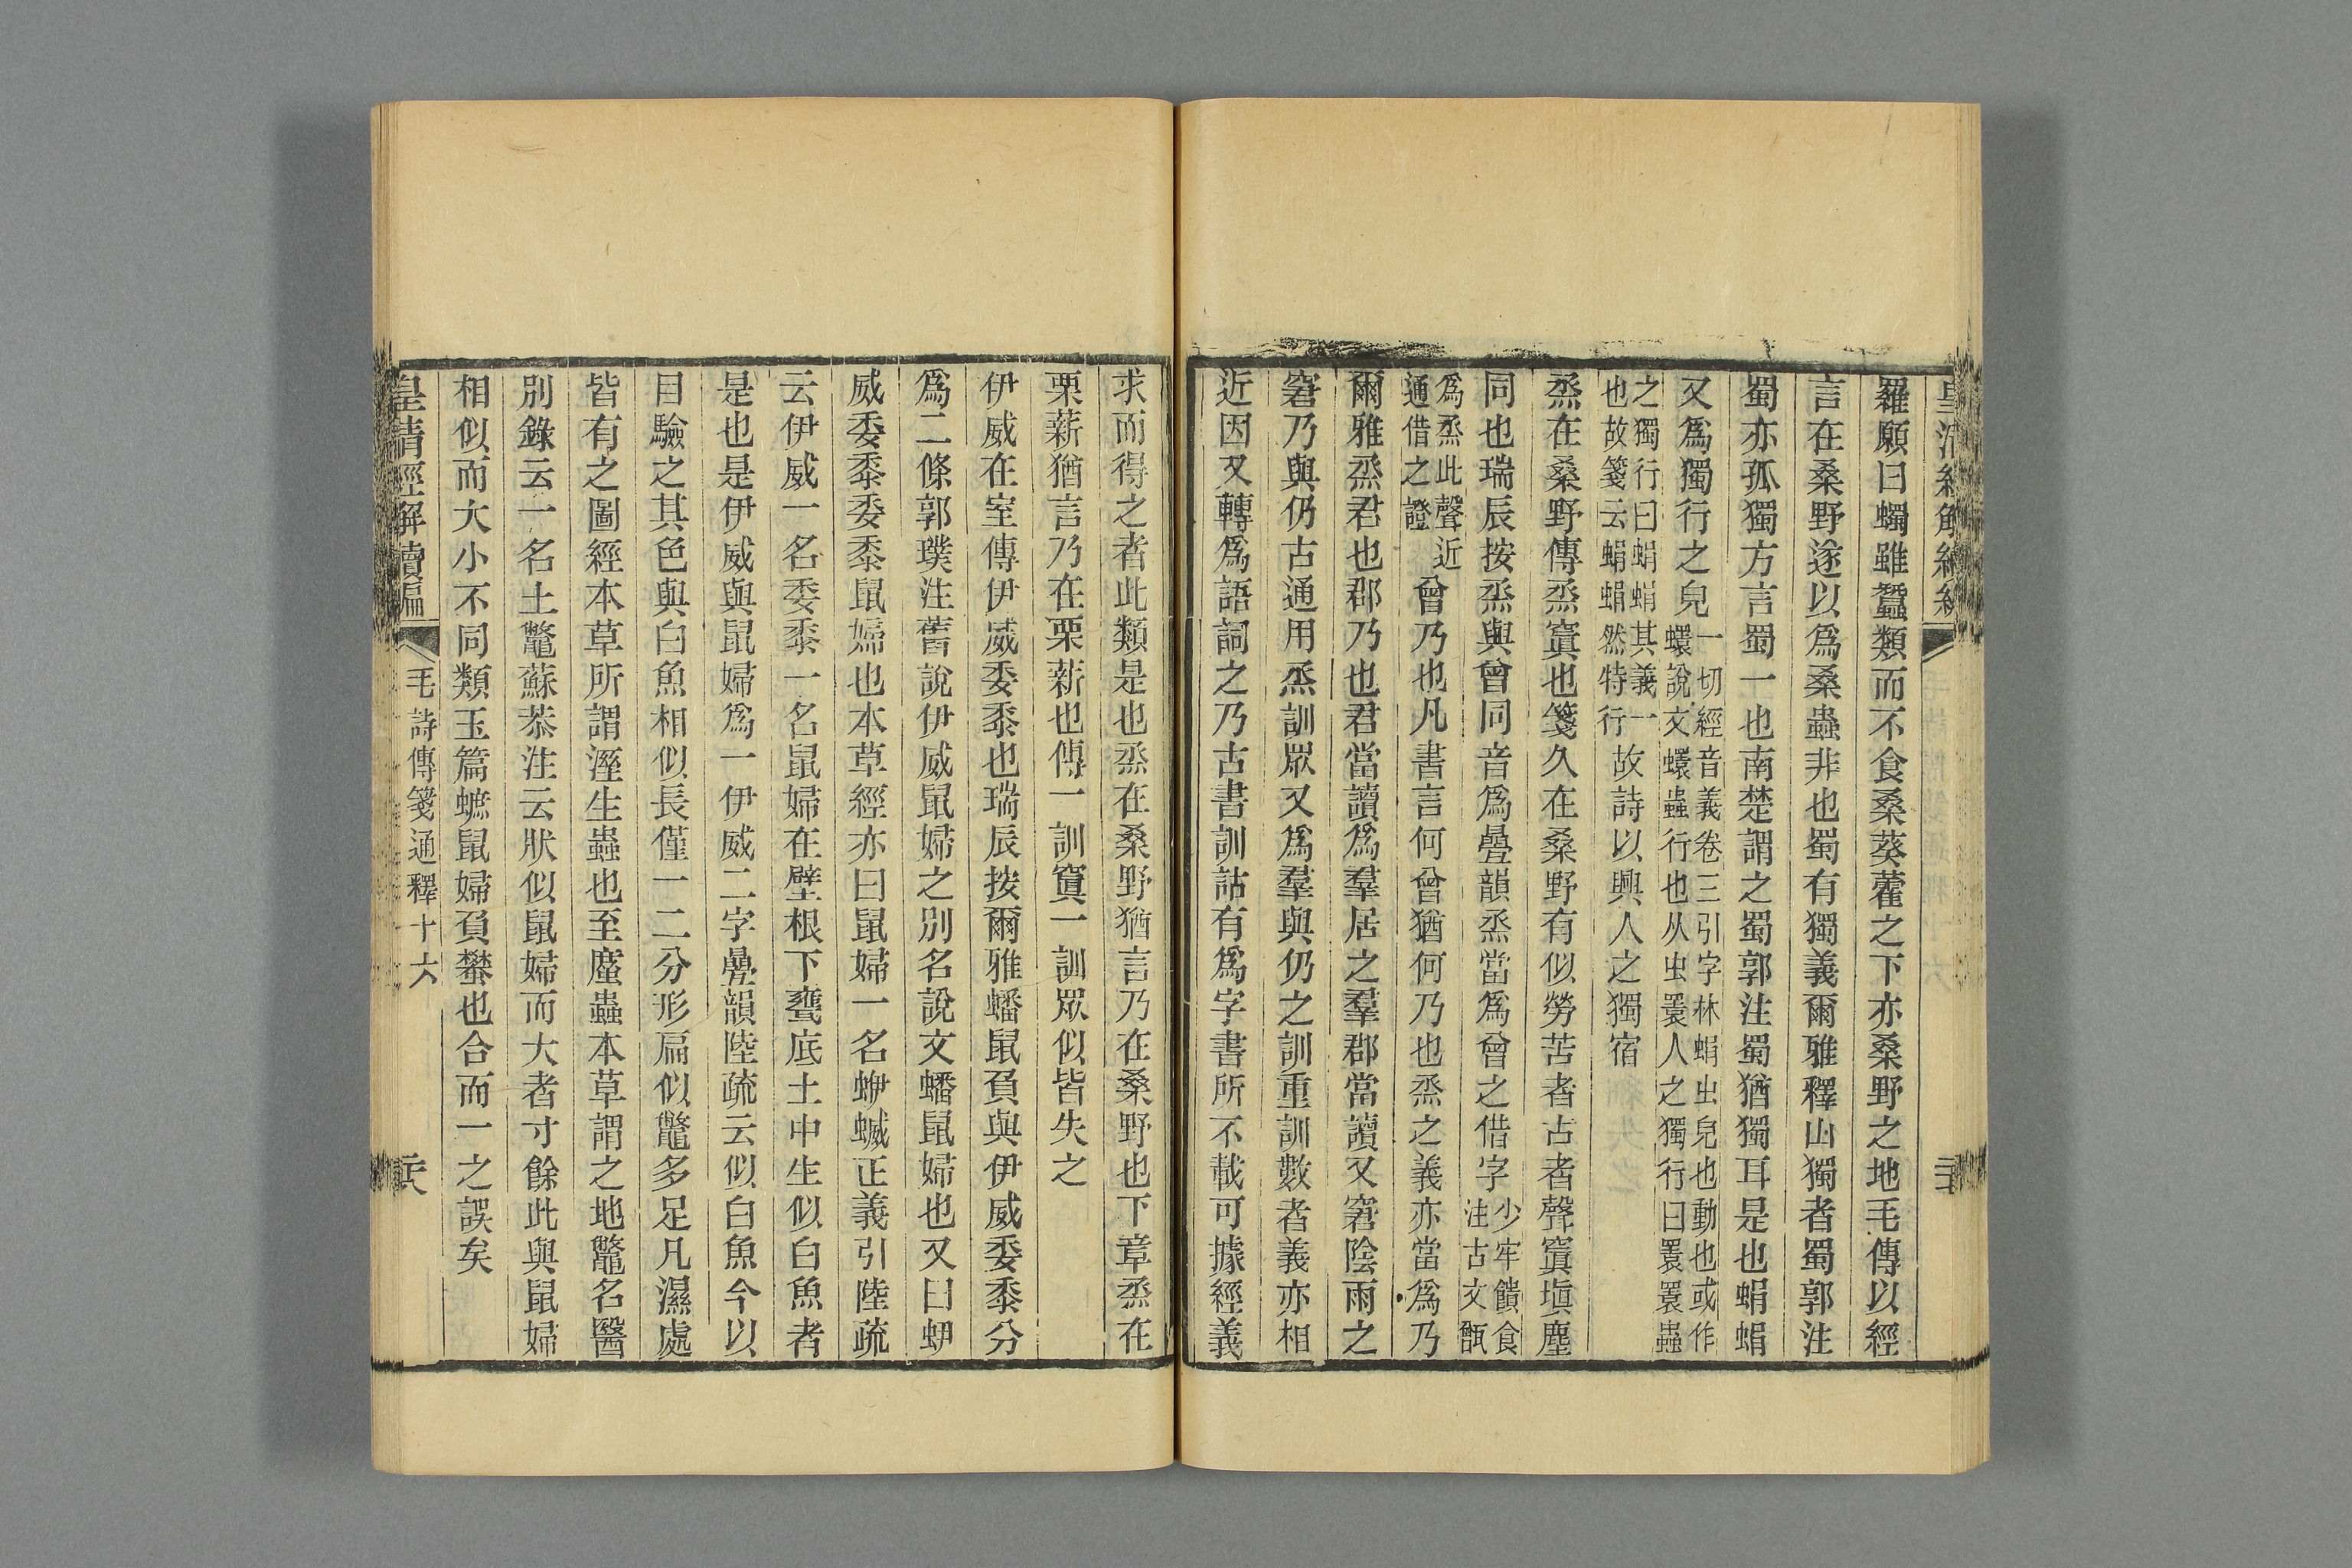 羅願曰蠋雖蠶類而不食桑葵藿之下亦桑野之地毛傳以經
言在桑野遂以爲桑蟲非也蜀有獨義爾雅釋山獨者蜀郭注
蜀亦孤獨方言蜀一也南楚謂之蜀郭注蜀猶獨耳是也蜎蜎
又爲獨行之皃
一切經音義卷三引字林蜎虫皃也動也或作
蠉說文蠉蟲行也从虫瞏人之獨行曰瞏瞏蟲
之獨行曰蜎蜎其義一
也故箋云蜎蜎然特行
故詩以興人之獨宿
烝在桑野傳烝窴也箋久在桑野有似勞苦者古者聲窴塡塵
同也瑞辰按烝與曾同音爲曡韻烝當爲曾之借字
少牢饋食
注古文甑
爲烝此聲近
通借之證
曾乃也凡書言何曾猶何乃也烝之義亦當爲乃
爾雅烝君也郡乃也君當讀爲羣居之羣郡當讀又窘陰雨之
窘乃與仍古通用烝訓眾又爲羣與仍之訓重訓數者義亦相
近因又轉爲語詞之乃古書訓詁有爲字書所不載可據經義
求而得之者此類是也烝在桑野猶言乃在桑野也下章烝在
栗薪猶言乃在栗薪也傳一訓窴一訓眾似皆失之
伊威在室傳伊威委黍也瑞辰按爾雅蟠鼠負與伊威委黍分
爲二條郭璞注舊說伊威鼠婦之別名說文蟠鼠婦也又曰蛜
威委黍委黍鼠婦也本草經亦曰鼠婦一名蛜蝛正義引陸疏
云伊威一名委黍一名鼠婦在壁根下甕底土中生似白魚者
是也是伊威與鼠婦爲一伊威二字曡韻陸疏云似白魚今以
目驗之其色與白魚相似長僅一二分形扁似鼈多足凡濕處
皆有之圖經本草所謂溼生蟲也至䗪蟲本草謂之地鼈名醫
別錄云一名土鼈蘇恭注云狀似鼠婦而大者寸餘此與鼠婦
相似而大小不同類玉篇蟅鼠婦負蠜也合而一之誤矣
皇清經解續編
毛詩傳箋通釋十六